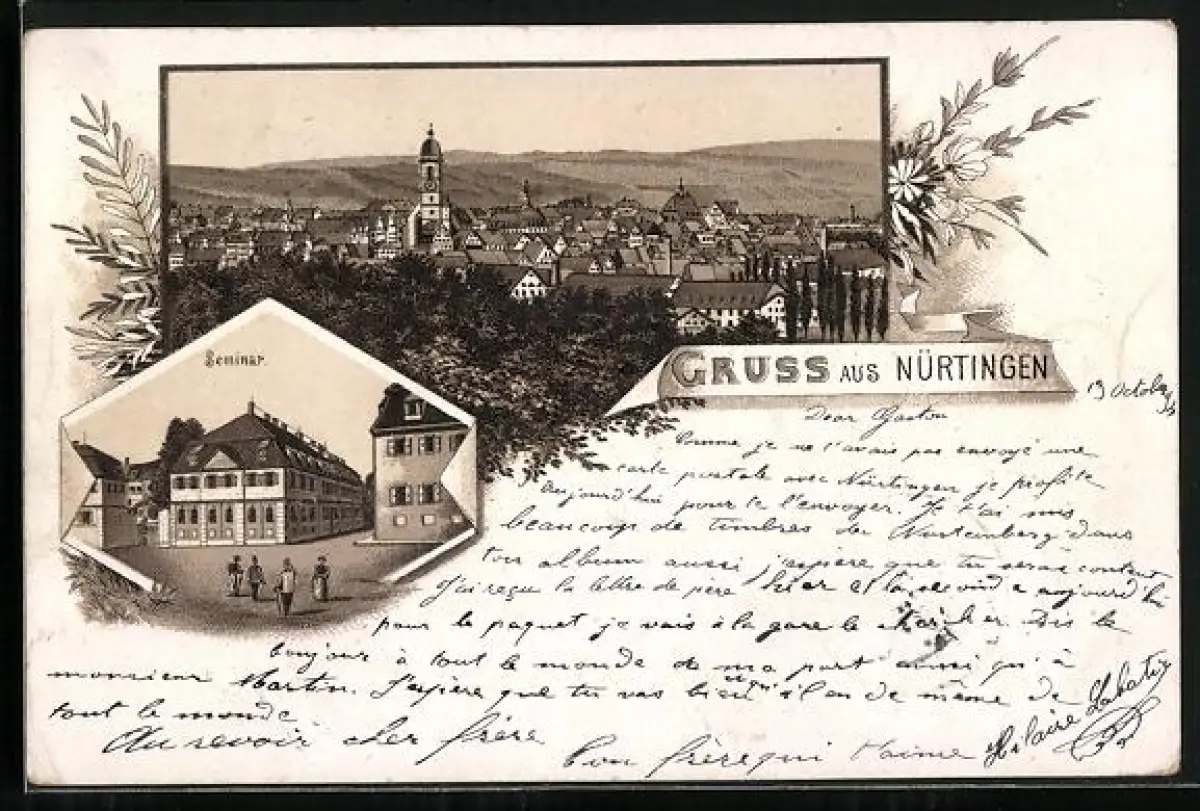 Seminar.
GRUSS AUS NÜRTINGEN
13 October
Dear Gaston
Comme je ne t'avais pas envoyé une
carte postale avec Nürtingen je profite
aujourd'hui pour te l'envoyer. Je t'ai mis
beaucoup de timbres de dans
ton album aussi j'espère que tu seras content
J'ai reçu la lettre de père hier et aujourd'hui
pour le paquet je vais à la gare le chercher. Dis le
bonjour à tout le monde de ma part ainsi qu'à
monsieur Martin. J'espère que tu vas bien qu'il en de même de
tout le monde
Au revoir cher frère
Ton frère qui t'aime
Hilaire Labat